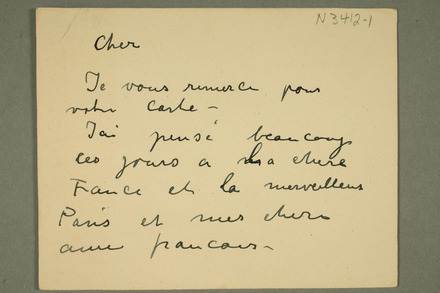 N3412-1
Cher
Je vous remerce pour
votre carte –
J'ai pensé beaucoup
ces jours a la chere
France et la merveilleus
Paris et mes chers
amis francais –